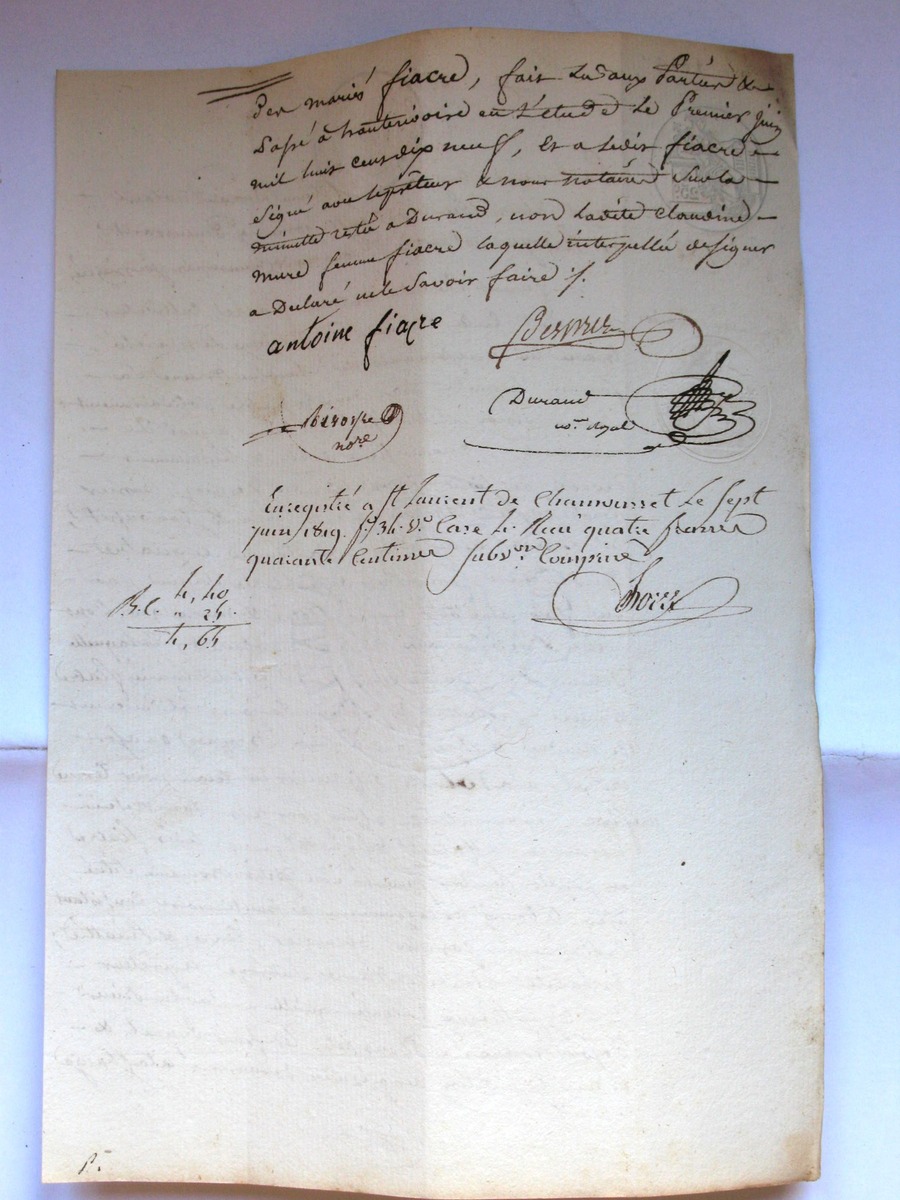 Des mariés fiacre, fait Lu aux Parties &
Passé a hauterivoire en L'étude Le Premier juin
mil huit cent dix neuf, Et a Ledit fiacre
Signé avec le prêteur & nous notaires Sur la
minutte restée a Durand, non Ladite Claudine
Mure femme fiacre laquelle interpellée de Signer
a Declaré ne le Savoir faire ./.
antoine fiacre
Durand
nre royal
nore
Enregistré a St Laurent de Chamousset Le Sept
juin 1819. fo 34. Vo Case 4. Reçu quatre francs
quarante Centimes Subvon Comprise
4, 40
R.C. " 25.
4, 65
P.